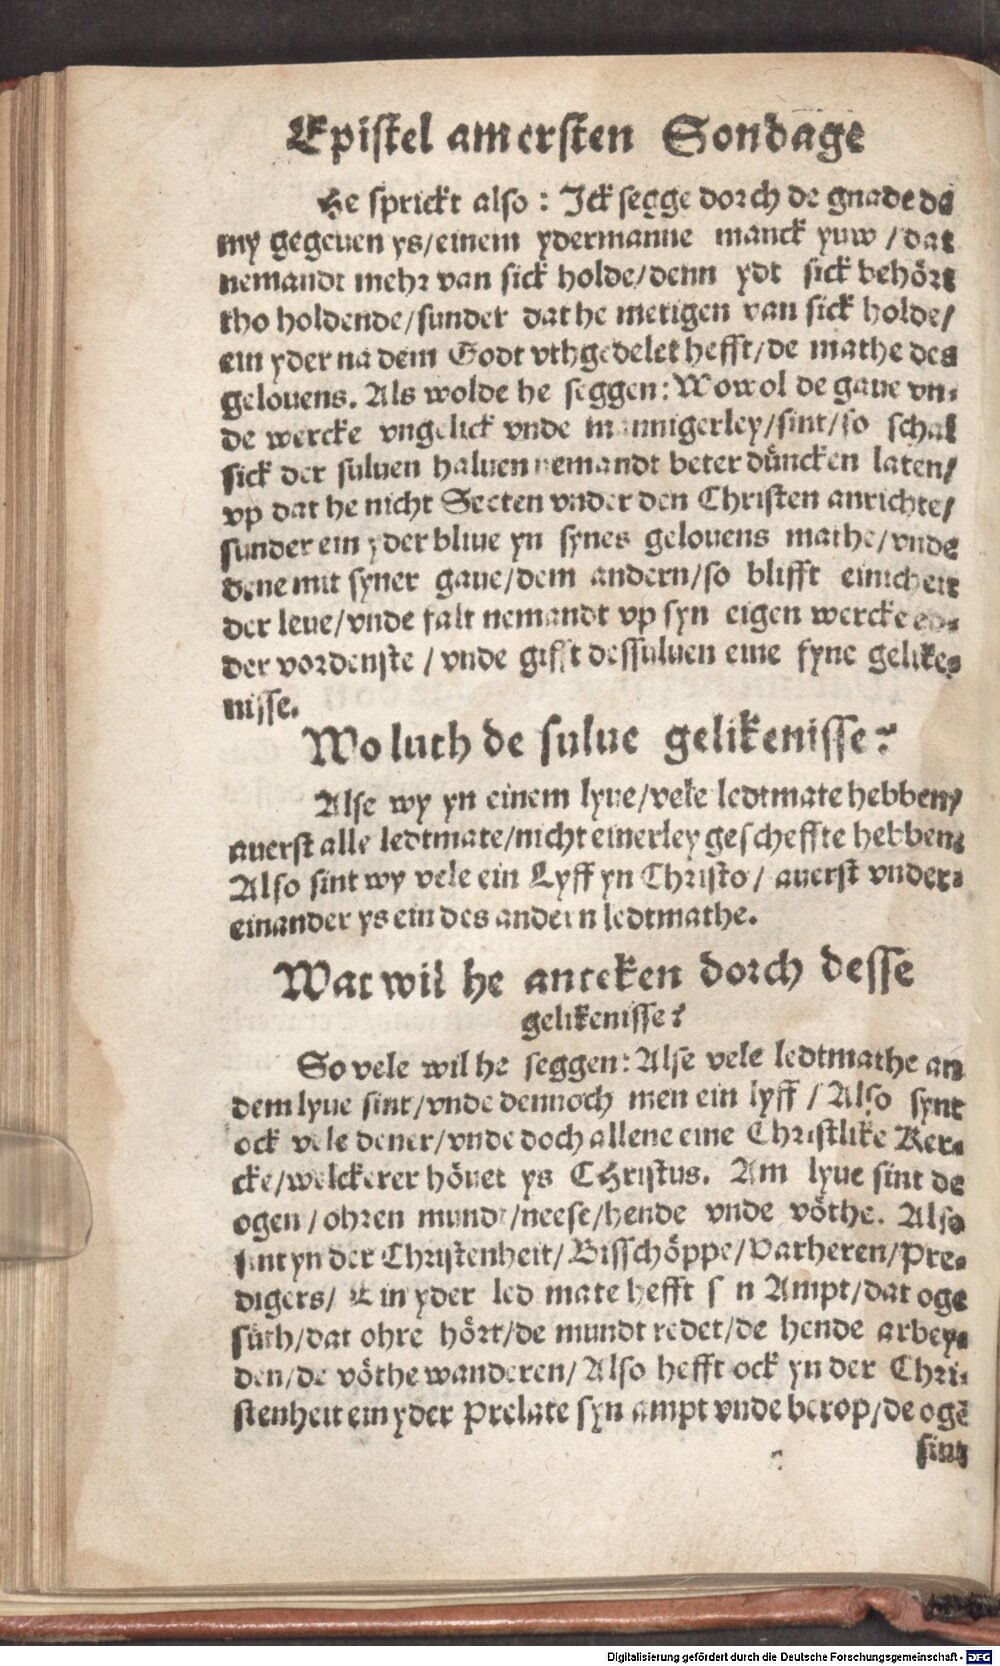 Epistel am ersten Sondage
He sprickt also: Ick segge dorch de gnade de
my gegeuen ys/einem ydermanne manck yuw/dat
nemandt mehr van sick holde/denn ydt sick behört
tho holdende/sunder dat he metigen van sick holde/
ein yder na dem Godt vthgedelet hefft/de mathe des
gelouens. Als wolde he seggen: Wowol de gaue vn-
de wercke vngelick vnde mannigerley/sint/so schal
sick der suluen haluen nemandt beter düncken laten/
vp dat he nicht Secten vnder den Christen anrichte/
sunder ein yder bliue yn synes gelouens mathe/vnde
dene mit syner gaue/dem andern/so blifft einicheit
der leue/vnde falt nemandt vp syn eigen wercke ed-
der vordenste/vnde gifft dessuluen eine fyne gelike-
nisse.
Wo luth de sulue gelikenisse?
Alse wy yn einem lyue/vele ledtmate hebben/
auerst alle ledtmate/nicht einerley gescheffte hebben.
Also sint wy vele ein Lyff yn Christo/auerst vnder-
einander ys ein des andern ledtmathe.
Wat wil he anteken dorch desse
gelikenisse?
So vele wil he seggen: Alse vele ledtmathe an
dem lyue sint/vnde dennoch men ein lyff/Also synt
ock vele dener/vnde doch allene eine Christlike Ker-
cke/welckerer höuet ys CHristus. Am lyue sint de
ogen/ohren mundt/neese/hende vnde vöthe. Also
sint yn der Christenheit/Bisschöppe/Parheren/Pre-
digers/Ein yder led mate hefft s n Ampt/dat oge
süth/dat ohre hört/de mundt redet/de hende arbey-
den/de vöthe wanderen/Also hefft ock yn der Chri-
stenheit ein yder Prelate syn ampt vnde berop/de ogē
sint
Digitalisierung gefördert durch die Deutsche Forschungsgemeinschaft - DFG